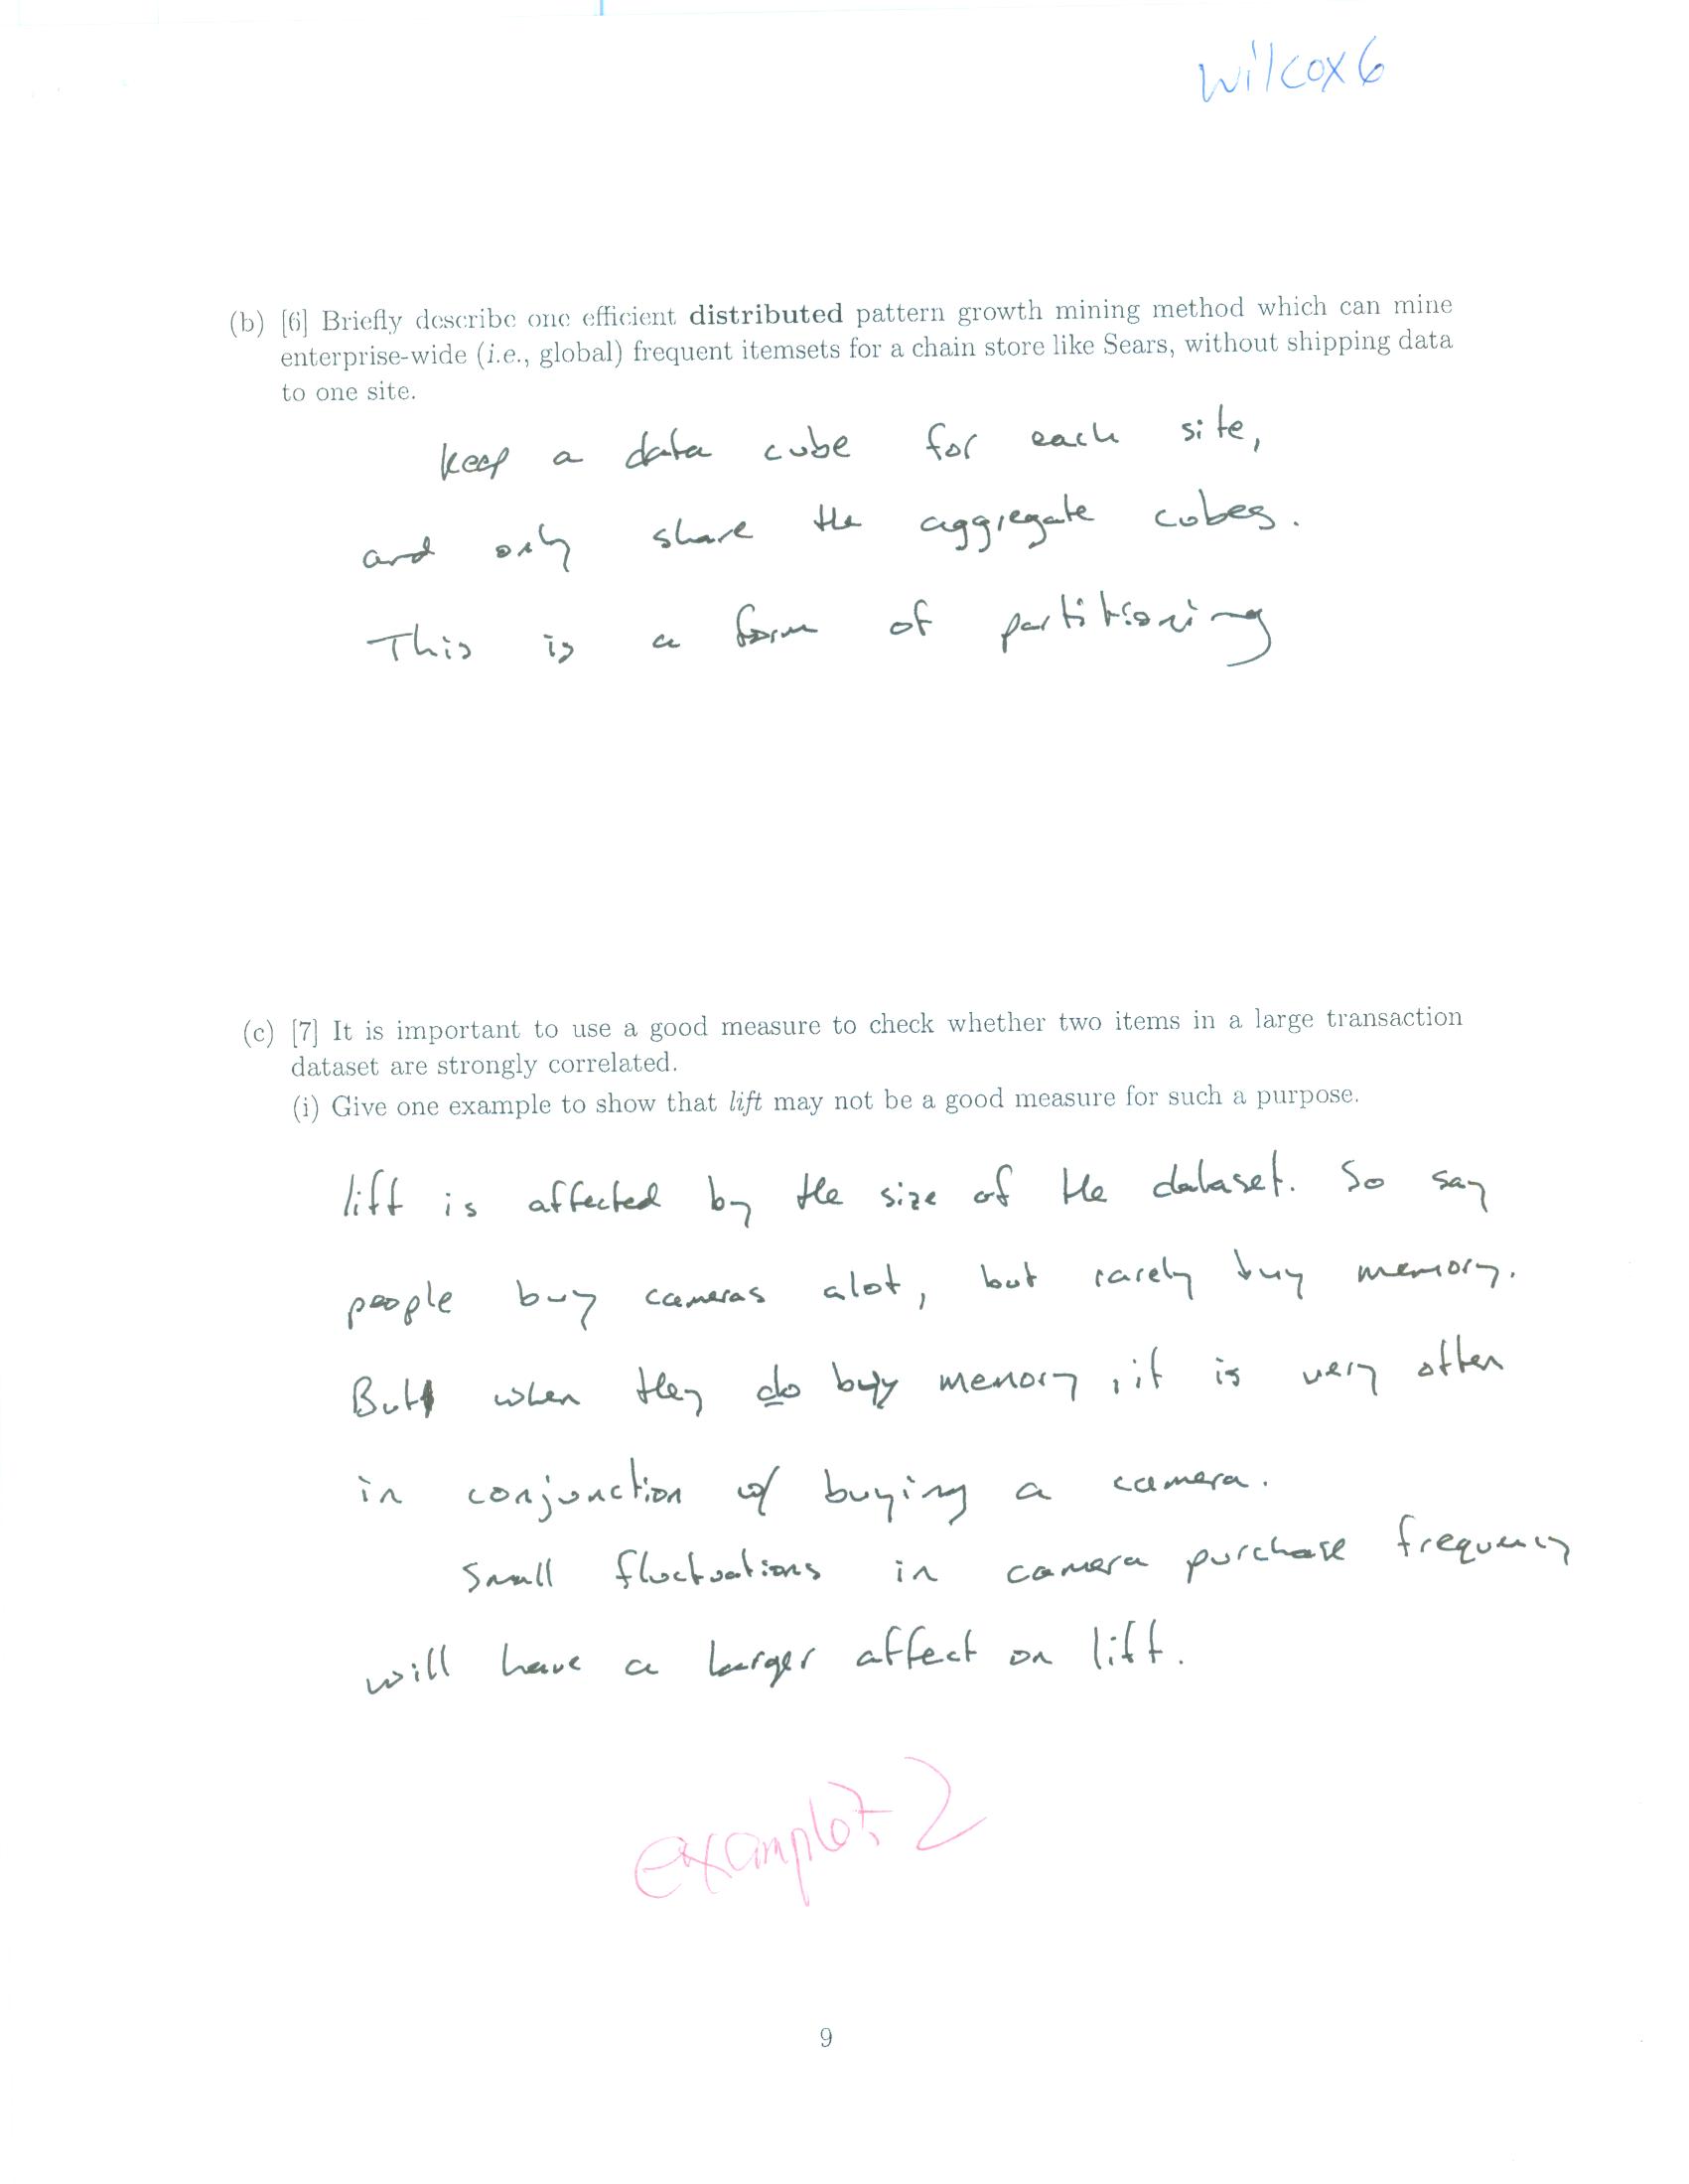 wilcox6
(b) [6] Briefly describe one efficient distributed pattern growth mining method which can mine
enterprise-wide (i.e., global) frequent itemsets for a chain store like Sears, without shipping data
to one site.
keep a data cube for each site,
and only share the aggregate cubes.
This is a form of partitioning
(c) [7] It is important to use a good measure to check whether two items in a large transaction
dataset are strongly correlated.
(i) Give one example to show that lift may not be a good measure for such a purpose.
lift is affected by the size of the dataset. So say
people buy cameras alot, but rarely buy memory.
But when they do buy memory, it is very often
in conjunction w/ buying a camera.
Small fluctuations in camera purchase frequency
will have a larger affect on lift.
example? 2
9